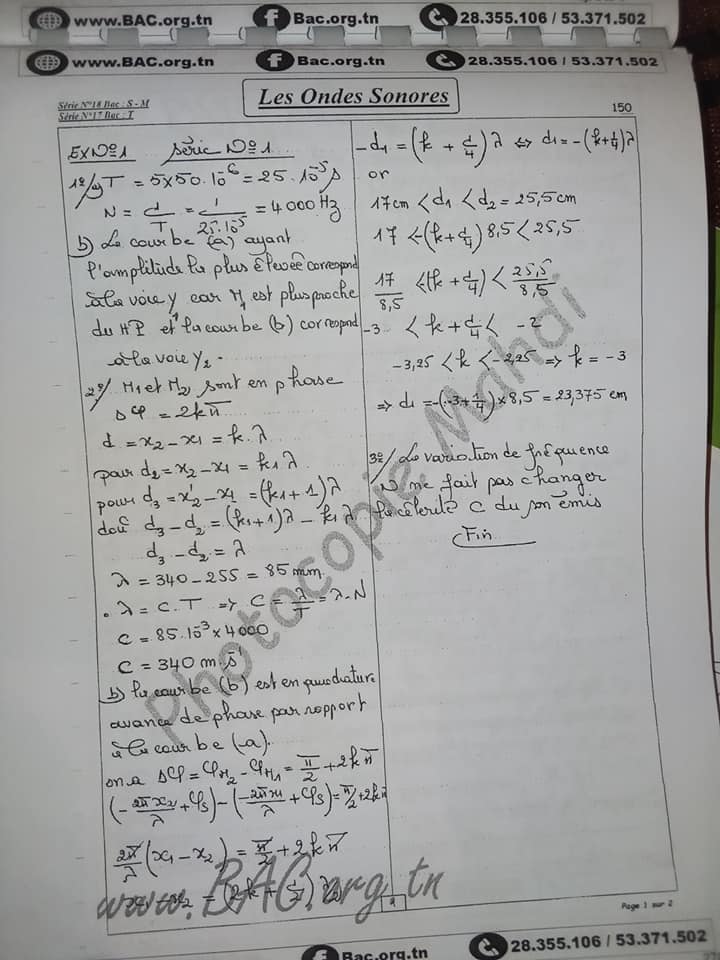 www.BAC.org.tn Bac.org.tn 28.355.106 / 53.371.502
www.BAC.org.tn Bac.org.tn 28.355.106 / 53.371.502
Les Ondes Sonores
Série N°18 Bac : S - M
Série N°17 Bac : T
150
EXN°1 Série N°1
1°/a) T = 5×50.10⁻⁶ = 25.10⁻⁵ s
N = 1/T = 1/25.10⁻⁵ = 4000 Hz
b) La courbe (a) ayant
l'amplitude la plus élevée correspond
à la voie Y₁ car M₁ est plus proche
du HP et la courbe (b) correspond
à la voie Y₂.
2°/ M₁ et M₂ sont en phase
Δφ = 2kπ
d = x₂ - x₁ = k.λ
pour d₂ = x₂ - x₁ = k₁λ
pour d₃ = x'₂ - x₁ = (k₁+1)λ
d'où d₃ - d₂ = (k₁+1)λ - k₁λ
d₃ - d₂ = λ
λ = 340 - 255 = 85 mm.
. λ = C.T ⇒ C = λ/T = λ.N
C = 85.10⁻³ × 4000
C = 340 m.s⁻¹
b) la courbe (b) est en quadrature
avance de phase par rapport
à la courbe (a).
on a Δφ = φM₂ - φM₁ = π/2 + 2kπ
(-2πx₂/λ + φs) - (-2πx₁/λ + φs) = π/2 + 2kπ
2π/λ (x₁ - x₂) = π/2 + 2kπ
x₁ - x₂ = (2k + 1/2) λ/2
-d₁ = (k + 1/4) λ ⇔ d₁ = -(k+1/4)λ
or
17cm < d₁ < d₂ = 25,5 cm
17 < -(k+1/4) 8,5 < 25,5
17/8,5 < -(k + 1/4) < 25,5/8,5
-3 < k + 1/4 < -2
-3,25 < k < -2,25 ⇒ k = -3
⇒ d₁ = -(-3+1/4) × 8,5 = 23,375 cm
3°/ La variation de fréquence
N ne fait pas changer
la célérité C du son émis
Fin
Photocopie Mahdi
www.BAC.org.tn
Page 1 sur 2
Bac.org.tn 28.355.106 / 53.371.502